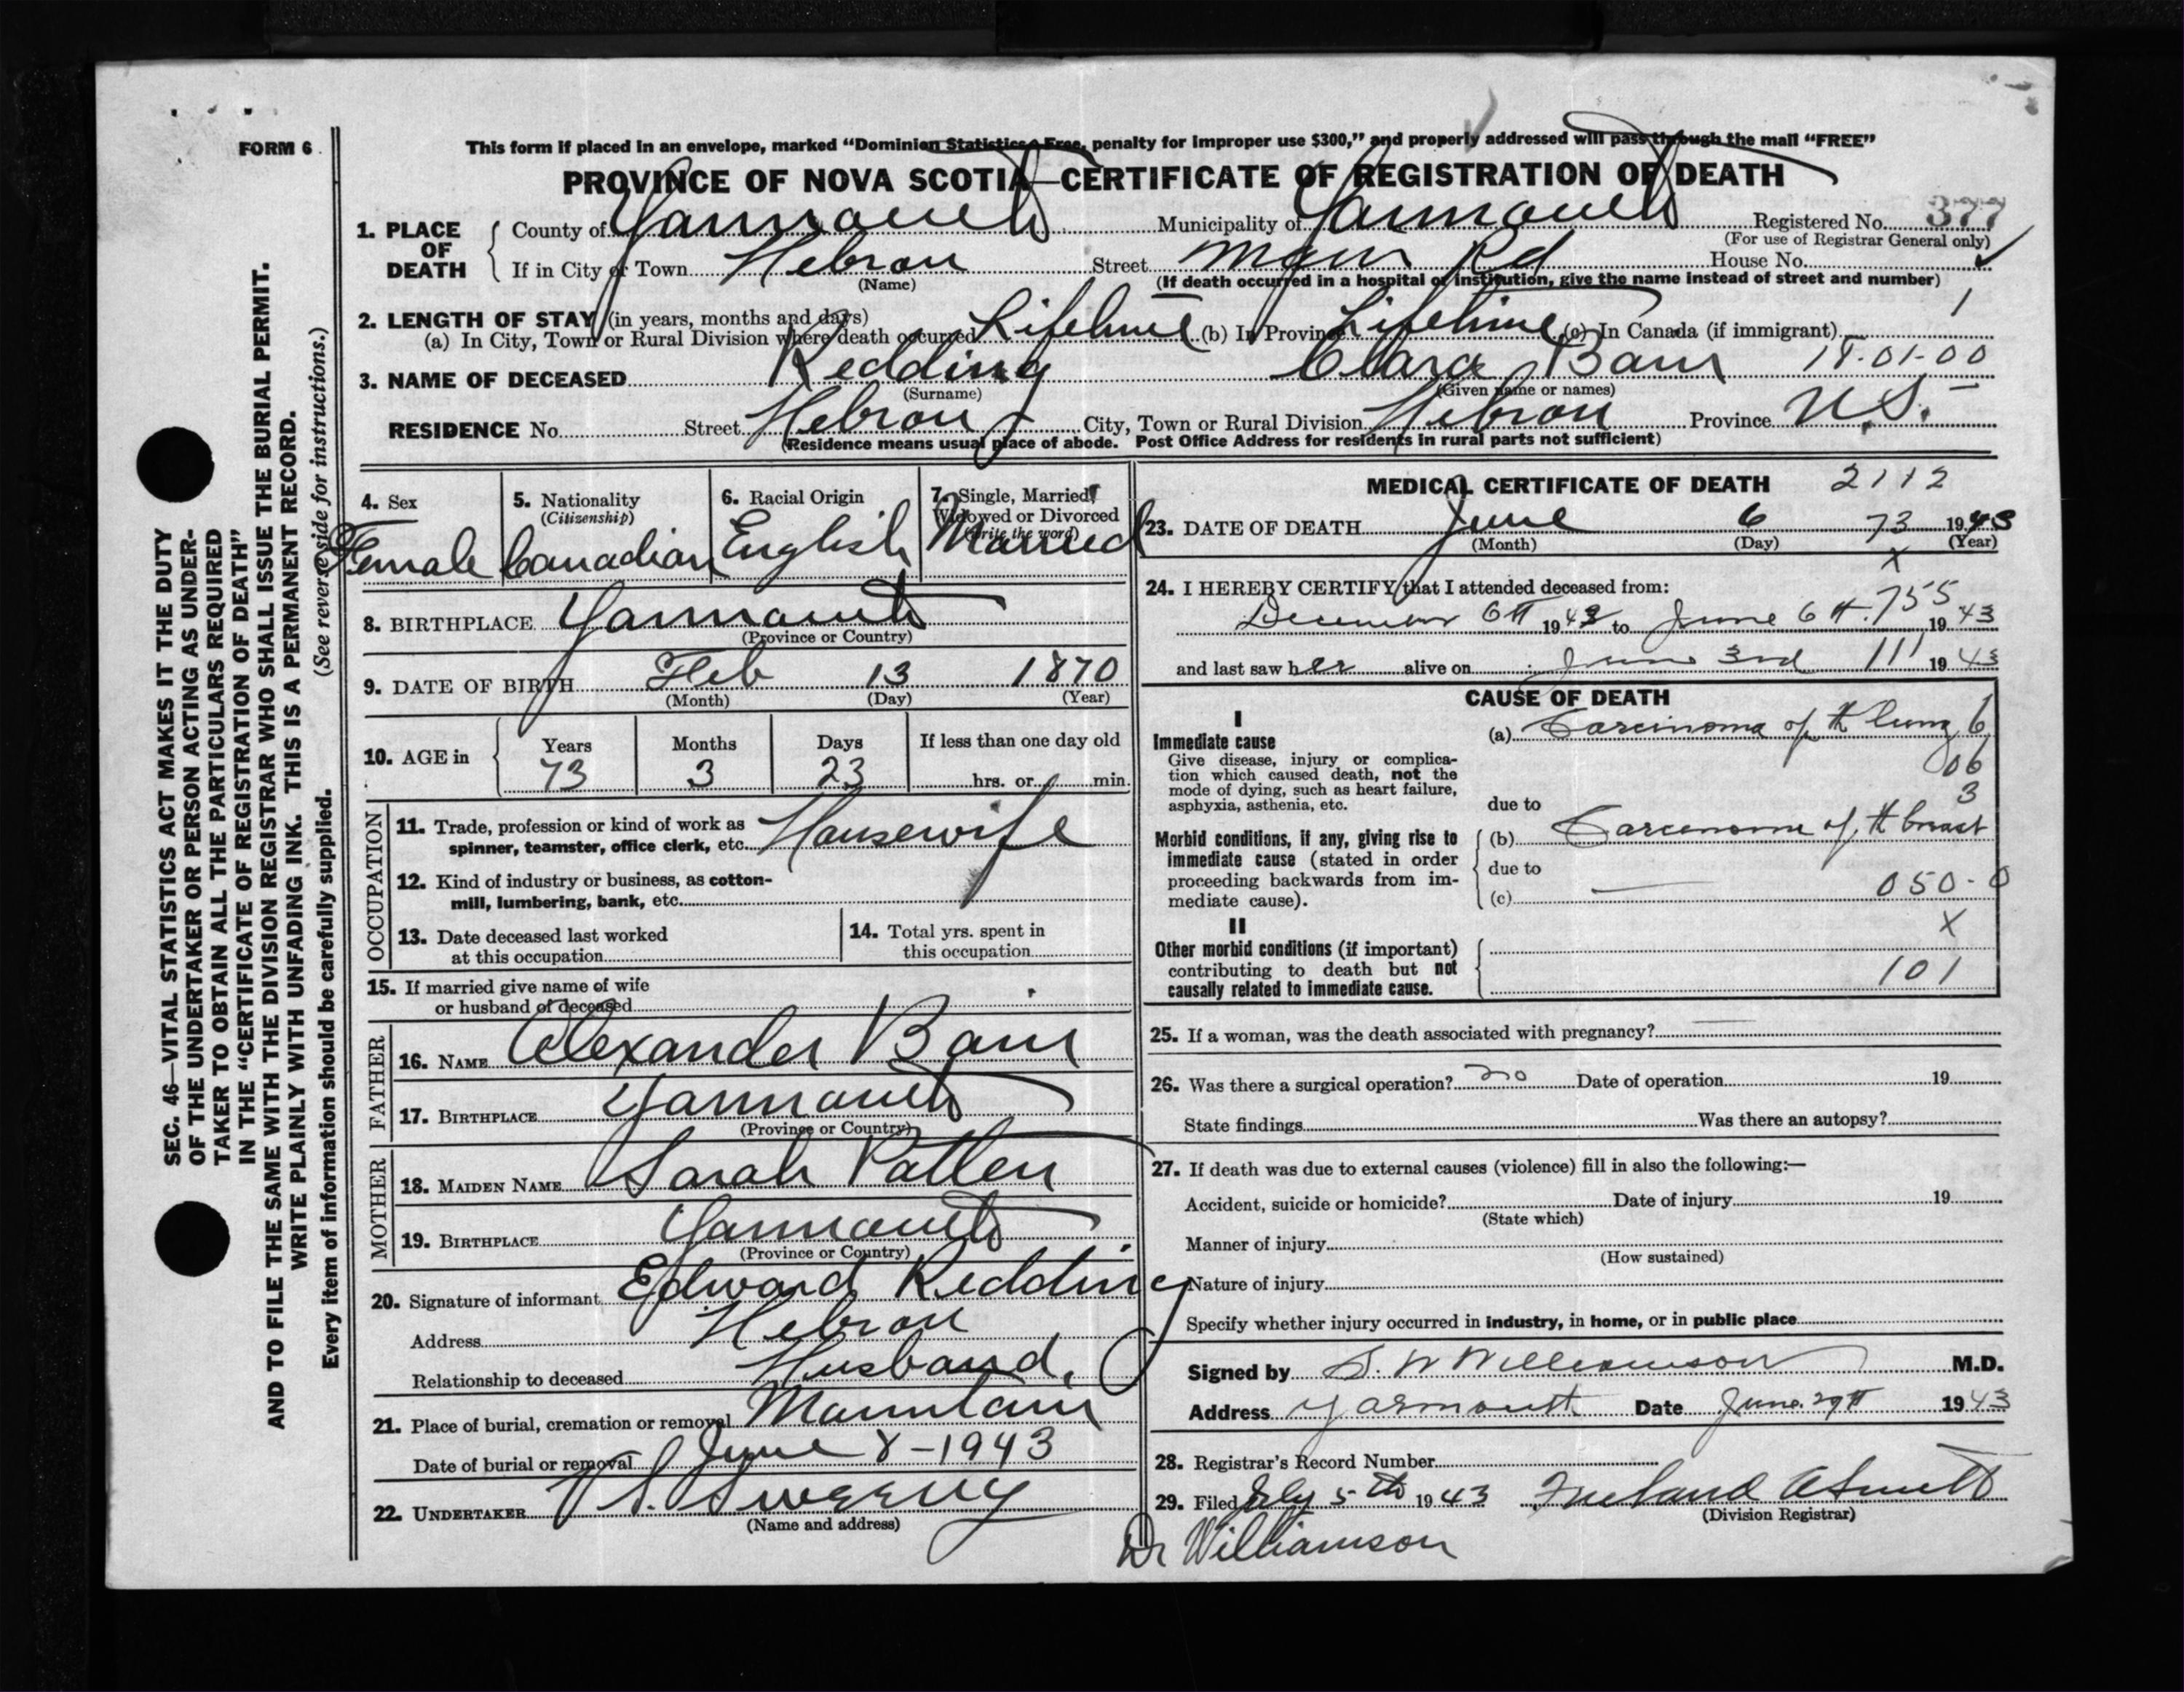 FORM 6
This form if placed in an envelope, marked "Dominion Statistics Free, penalty for improper use $300," and properly addressed will pass through the mail "FREE"
PROVINCE OF NOVA SCOTIA—CERTIFICATE OF REGISTRATION OF DEATH
1. PLACE OF DEATH
County of Yarmouth Municipality of Yarmouth Registered No. 377
(For use of Registrar General only)
If in City or Town Hebron Street Main Rd House No. ✓
(Name) (If death occurred in a hospital or institution, give the name instead of street and number)
2. LENGTH OF STAY (in years, months and days) 1
(a) In City, Town or Rural Division where death occurred Lifetime (b) In Province Lifetime (c) In Canada (if immigrant)
3. NAME OF DECEASED Redding Clara Bain 18-01-00
(Surname) (Given name or names)
RESIDENCE No. Street Hebron City, Town or Rural Division Hebron Province N.S.
(Residence means usual place of abode. Post Office Address for residents in rural parts not sufficient)
4. Sex
Female
5. Nationality
(Citizenship)
Canadian
6. Racial Origin
English
7. Single, Married, Widowed or Divorced
(Write the word)
Married
8. BIRTHPLACE Yarmouth
(Province or Country)
9. DATE OF BIRTH Feb 13 1870
(Month) (Day) (Year)
10. AGE in Years Months Days If less than one day old
73 3 23 hrs. or min.
OCCUPATION
11. Trade, profession or kind of work as
spinner, teamster, office clerk, etc. Housewife
12. Kind of industry or business, as cotton-
mill, lumbering, bank, etc.
13. Date deceased last worked
at this occupation
14. Total yrs. spent in
this occupation
15. If married give name of wife
or husband of deceased
FATHER
16. NAME Alexander Bain
17. BIRTHPLACE Yarmouth
(Province or Country)
MOTHER
18. MAIDEN NAME Sarah Patten
19. BIRTHPLACE Yarmouth
(Province or Country)
20. Signature of informant Edward Redding
Address Hebron
Relationship to deceased Husband.
21. Place of burial, cremation or removal Mountain
Date of burial or removal June 8-1943
22. UNDERTAKER V S. Sweeny
(Name and address)
MEDICAL CERTIFICATE OF DEATH 2112
23. DATE OF DEATH June 6 73 1943
(Month) (Day) (Year)
X
24. I HEREBY CERTIFY that I attended deceased from:
755
December 6th 1942 to June 6th 1943
and last saw her alive on June 3rd 111 1943
CAUSE OF DEATH
I
Immediate cause
Give disease, injury or complica-
tion which caused death, not the
mode of dying, such as heart failure,
asphyxia, asthenia, etc.
(a) Carcinoma of th lung 6
06
3
due to
Morbid conditions, if any, giving rise to
immediate cause (stated in order
proceeding backwards from im-
mediate cause).
(b) Carcenome of th breast
due to
(c) 050-0
X
II
Other morbid conditions (if important)
contributing to death but not
causally related to immediate cause.
101
25. If a woman, was the death associated with pregnancy? —
26. Was there a surgical operation? no Date of operation 19
State findings Was there an autopsy?
27. If death was due to external causes (violence) fill in also the following:—
Accident, suicide or homicide? Date of injury 19
(State which)
Manner of injury
(How sustained)
Nature of injury
Specify whether injury occurred in industry, in home, or in public place
Signed by S. W Williamson M.D.
Address Yarmouth Date June 29th 1943
28. Registrar's Record Number
29. Filed July 5th 1943
(Division Registrar)
Dr Williamson
SEC. 46—VITAL STATISTICS ACT MAKES IT THE DUTY
OF THE UNDERTAKER OR PERSON ACTING AS UNDER-
TAKER TO OBTAIN ALL THE PARTICULARS REQUIRED
IN THE "CERTIFICATE OF REGISTRATION OF DEATH"
AND TO FILE THE SAME WITH THE DIVISION REGISTRAR WHO SHALL ISSUE THE BURIAL PERMIT.
WRITE PLAINLY WITH UNFADING INK. THIS IS A PERMANENT RECORD.
Every item of information should be carefully supplied. (See reverse side for instructions.)